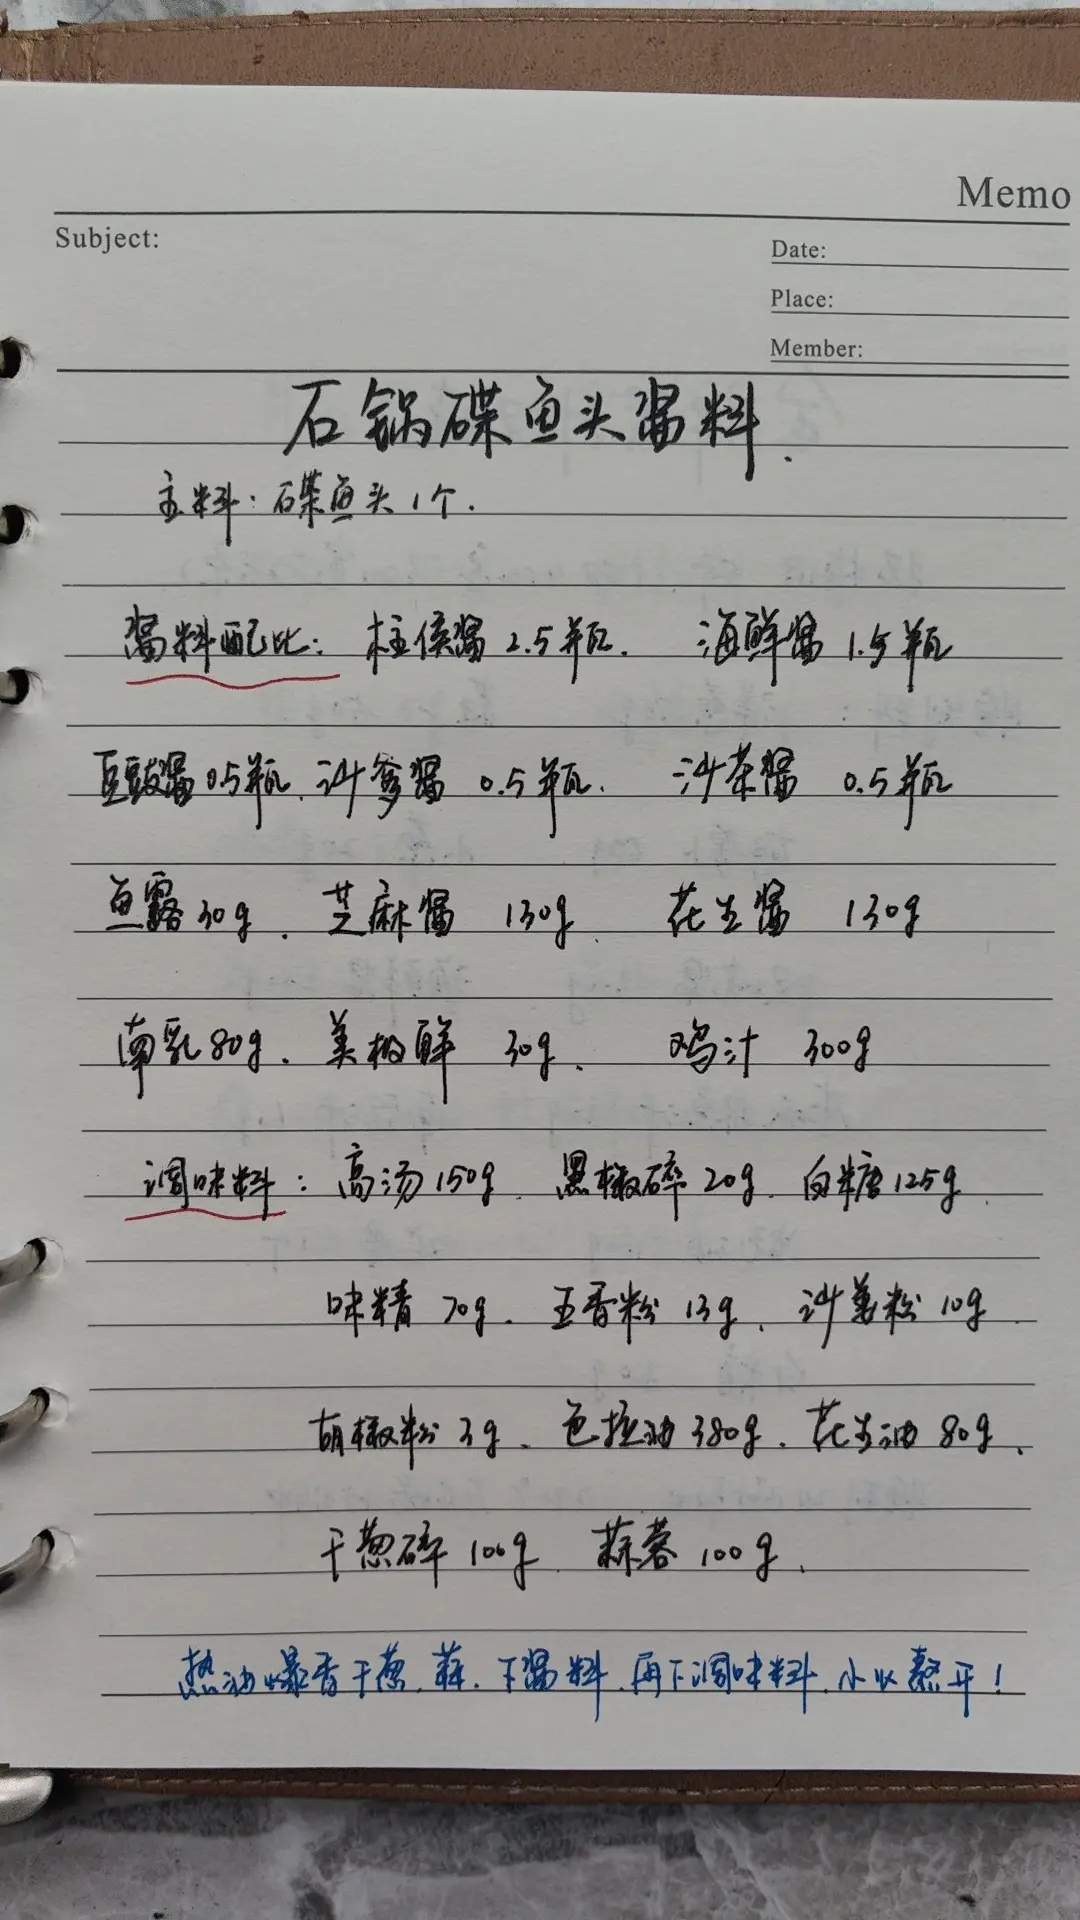 Memo
Subject:
Date:
Place:
Member:
石锅碟鱼头酱料.
主料:碟鱼头1个.
酱料配比: 柱侯酱2.5瓶. 海鲜酱1.5瓶
豆豉酱0.5瓶. 沙爹酱 0.5瓶. 沙茶酱 0.5瓶
鱼露30g. 芝麻酱 130g. 花生酱 130g
南乳80g. 美极鲜 30g. 鸡汁 300g
调味料: 高汤150g. 黑椒碎20g. 白糖125g.
味精 70g. 五香粉13g. 沙姜粉10g.
胡椒粉3g. 色拉油380g. 花生油80g.
干葱碎100g 蒜蓉100g.
热油爆香干葱.蒜.下酱料.再下调味料.小火熬开!